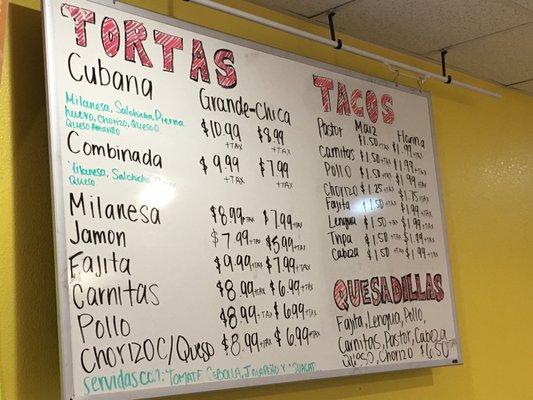 TORTAS
Grande-Chica
Cubana $10.99 +TAX $8.99 +TAX
Milanesa, Salchicha, Pierna
huevo, Chorizo, Queso O
Queso Amarillo
Combinada $9.99 +TAX $7.99 +TAX
Milanesa, Salchicha
Queso
Milanesa $8.99 +TAX $7.99 +TAX
Jamon $7.99 +TAX $5.99 +TAX
Fajita $9.99 +TAX $7.99 +TAX
Carnitas $8.99 +TAX $6.99 +TAX
Pollo $8.99 +TAX $6.99 +TAX
Chorizo C/Queso $8.99 +TAX $6.99 +TAX
servidas con: TOMATE CEBOLLA, JALAPEÑO Y
TACOS
Maiz Harina
Pastor $1.50 +TAX $1.99 +TAX
Carnitas $1.50 +TAX $1.99 +TAX
Pollo $1.50 +TAX $1.99 +TAX
Chorizo $1.25 +TAX $1.75 +TAX
Fajita $1.50 +TAX $1.99 +TAX
Lengua $1.50 +TAX $1.99 +TAX
Tripa $1.50 +TAX $1.99 +TAX
Cabeza $1.50 +TAX $1.99 +TAX
QUESADILLAS
Fajita, Lengua, Pollo,
Carnitas, Pastor, Cabeza
Queso, Chorizo $6.50 +TAX